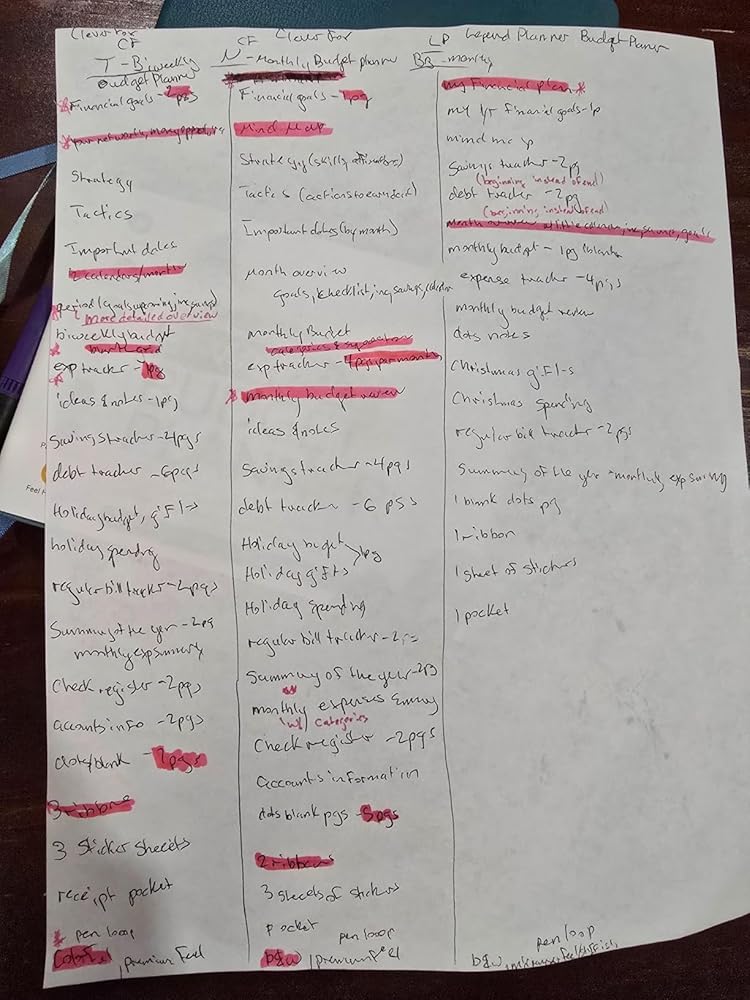 Clever Fox
CF
T - Biweekly
Budget Planner
Financial goals - 2pgs
Strategy
Tactics
Important dates
2 calendars/month
period (goals, upcoming, inc, savings)
more detailed overview
biweekly budget
exp tracker - 7pg
ideas & notes - 1pg
Savings tracker - 4pgs
debt tracker - 6pgs
Holiday budget, gifts
holiday spending
regular bill tracker - 2pgs
Summary of the year - 2pg
monthly exp summary
Check register - 2pgs
accounts info - 2pgs
dots/blank - 7pgs
3 ribbons
3 Sticker sheets
receipt pocket
pen loop
Colorful, premium feel
CF Clever Fox
N - Monthly Budget planner
Financial goals - 1pg
Mind Map
Strategy (skills,
Tactics (actions to
Important dates (by month)
month overview
goals, checklist, inc, savings, calendar
monthly Budget
categories & separators
exp tracker - 4pgs per month
monthly budget review
ideas & notes
Savings tracker - 4pgs
debt tracker - 6 pgs
Holiday budget
1pg
Holiday gifts
Holiday spending
regular bill tracker - 2pgs
Summary of the year - 2pg
monthly expenses summary
(w/ categories
Check register - 2pgs
accounts information
dots blank pgs - 5pgs
2 ribbons
3 sheets of stickers
pocket
pen loop
b&w, premium feel
LP Legend Planner Budget Planner
BB - monthly
my Financial plan
my yr financial goals - 1p
mind map
Savings tracker - 2pg
(beginning instead of end)
debt tracker - 2pg
(beginning instead of end)
month overview w/ little calendar, inc, savings, goals
monthly budget - 1pg (blank)
expense tracker - 4pgs
monthly budget review
dots notes
Christmas gifts
Christmas spending
regular bill tracker - 2pgs
Summary of the year + monthly exp summary
1 blank dots pg
1 ribbon
1 sheet of stickers
1 pocket
pen loop
b&w,